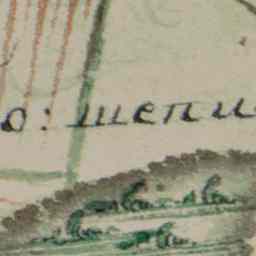 о: шепи